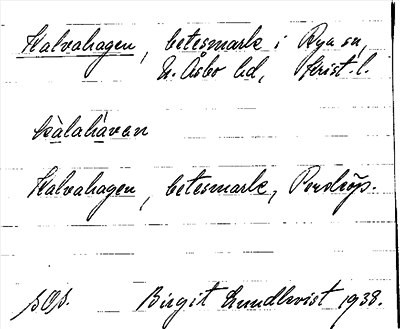 Kalvahagen, betesmark i Rya sn,
N. Åsbo hd, Krist. l.
kàlahàvan
Kalvahagen, betesmark,
Birgit Lundkvist 1938.